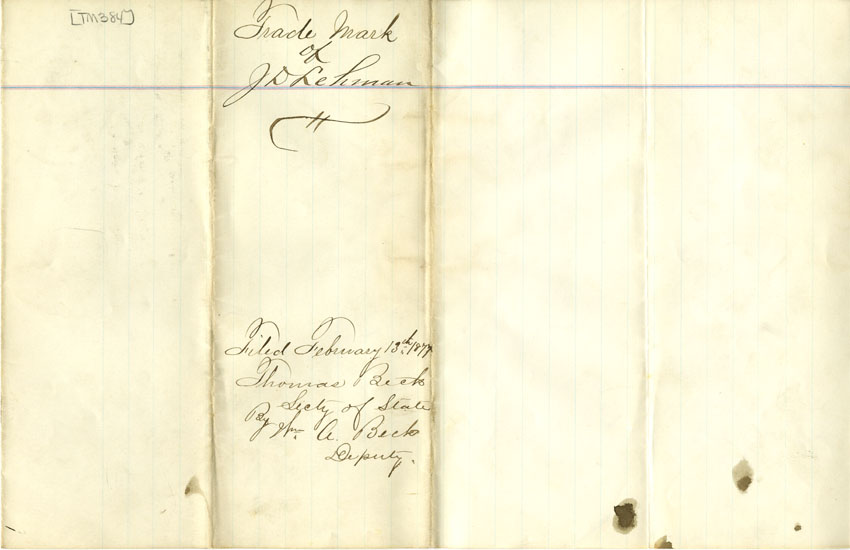 [TM384]
Trade Mark
of
J D Lehman
Filed February 13th 1877
Thomas Beck
Secty of State
By Wm A. Beck
Deputy.